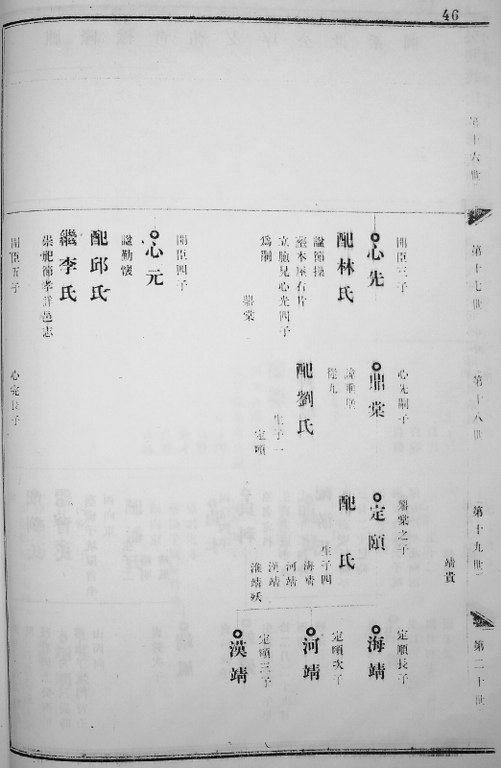 46
第十六世
第十七世
第十八世
第十九世
第二十世
靖貴
開臣三子
心先
配林氏
諡節操
立胞兄心光四子
為嗣
鼎棠
開臣四子
心元
諡勤懷
配邱氏
繼李氏
崇祀節孝詳邑志
開臣五子
心先嗣子
鼎棠
從九
配劉氏
生子一
定頤
心定長子
鼎棠之子
定頤
配 氏
生子四
海靖
河靖
漢靖
淮靖殀
定頤長子
海靖
定頤次子
河靖
定頤三子
漢靖